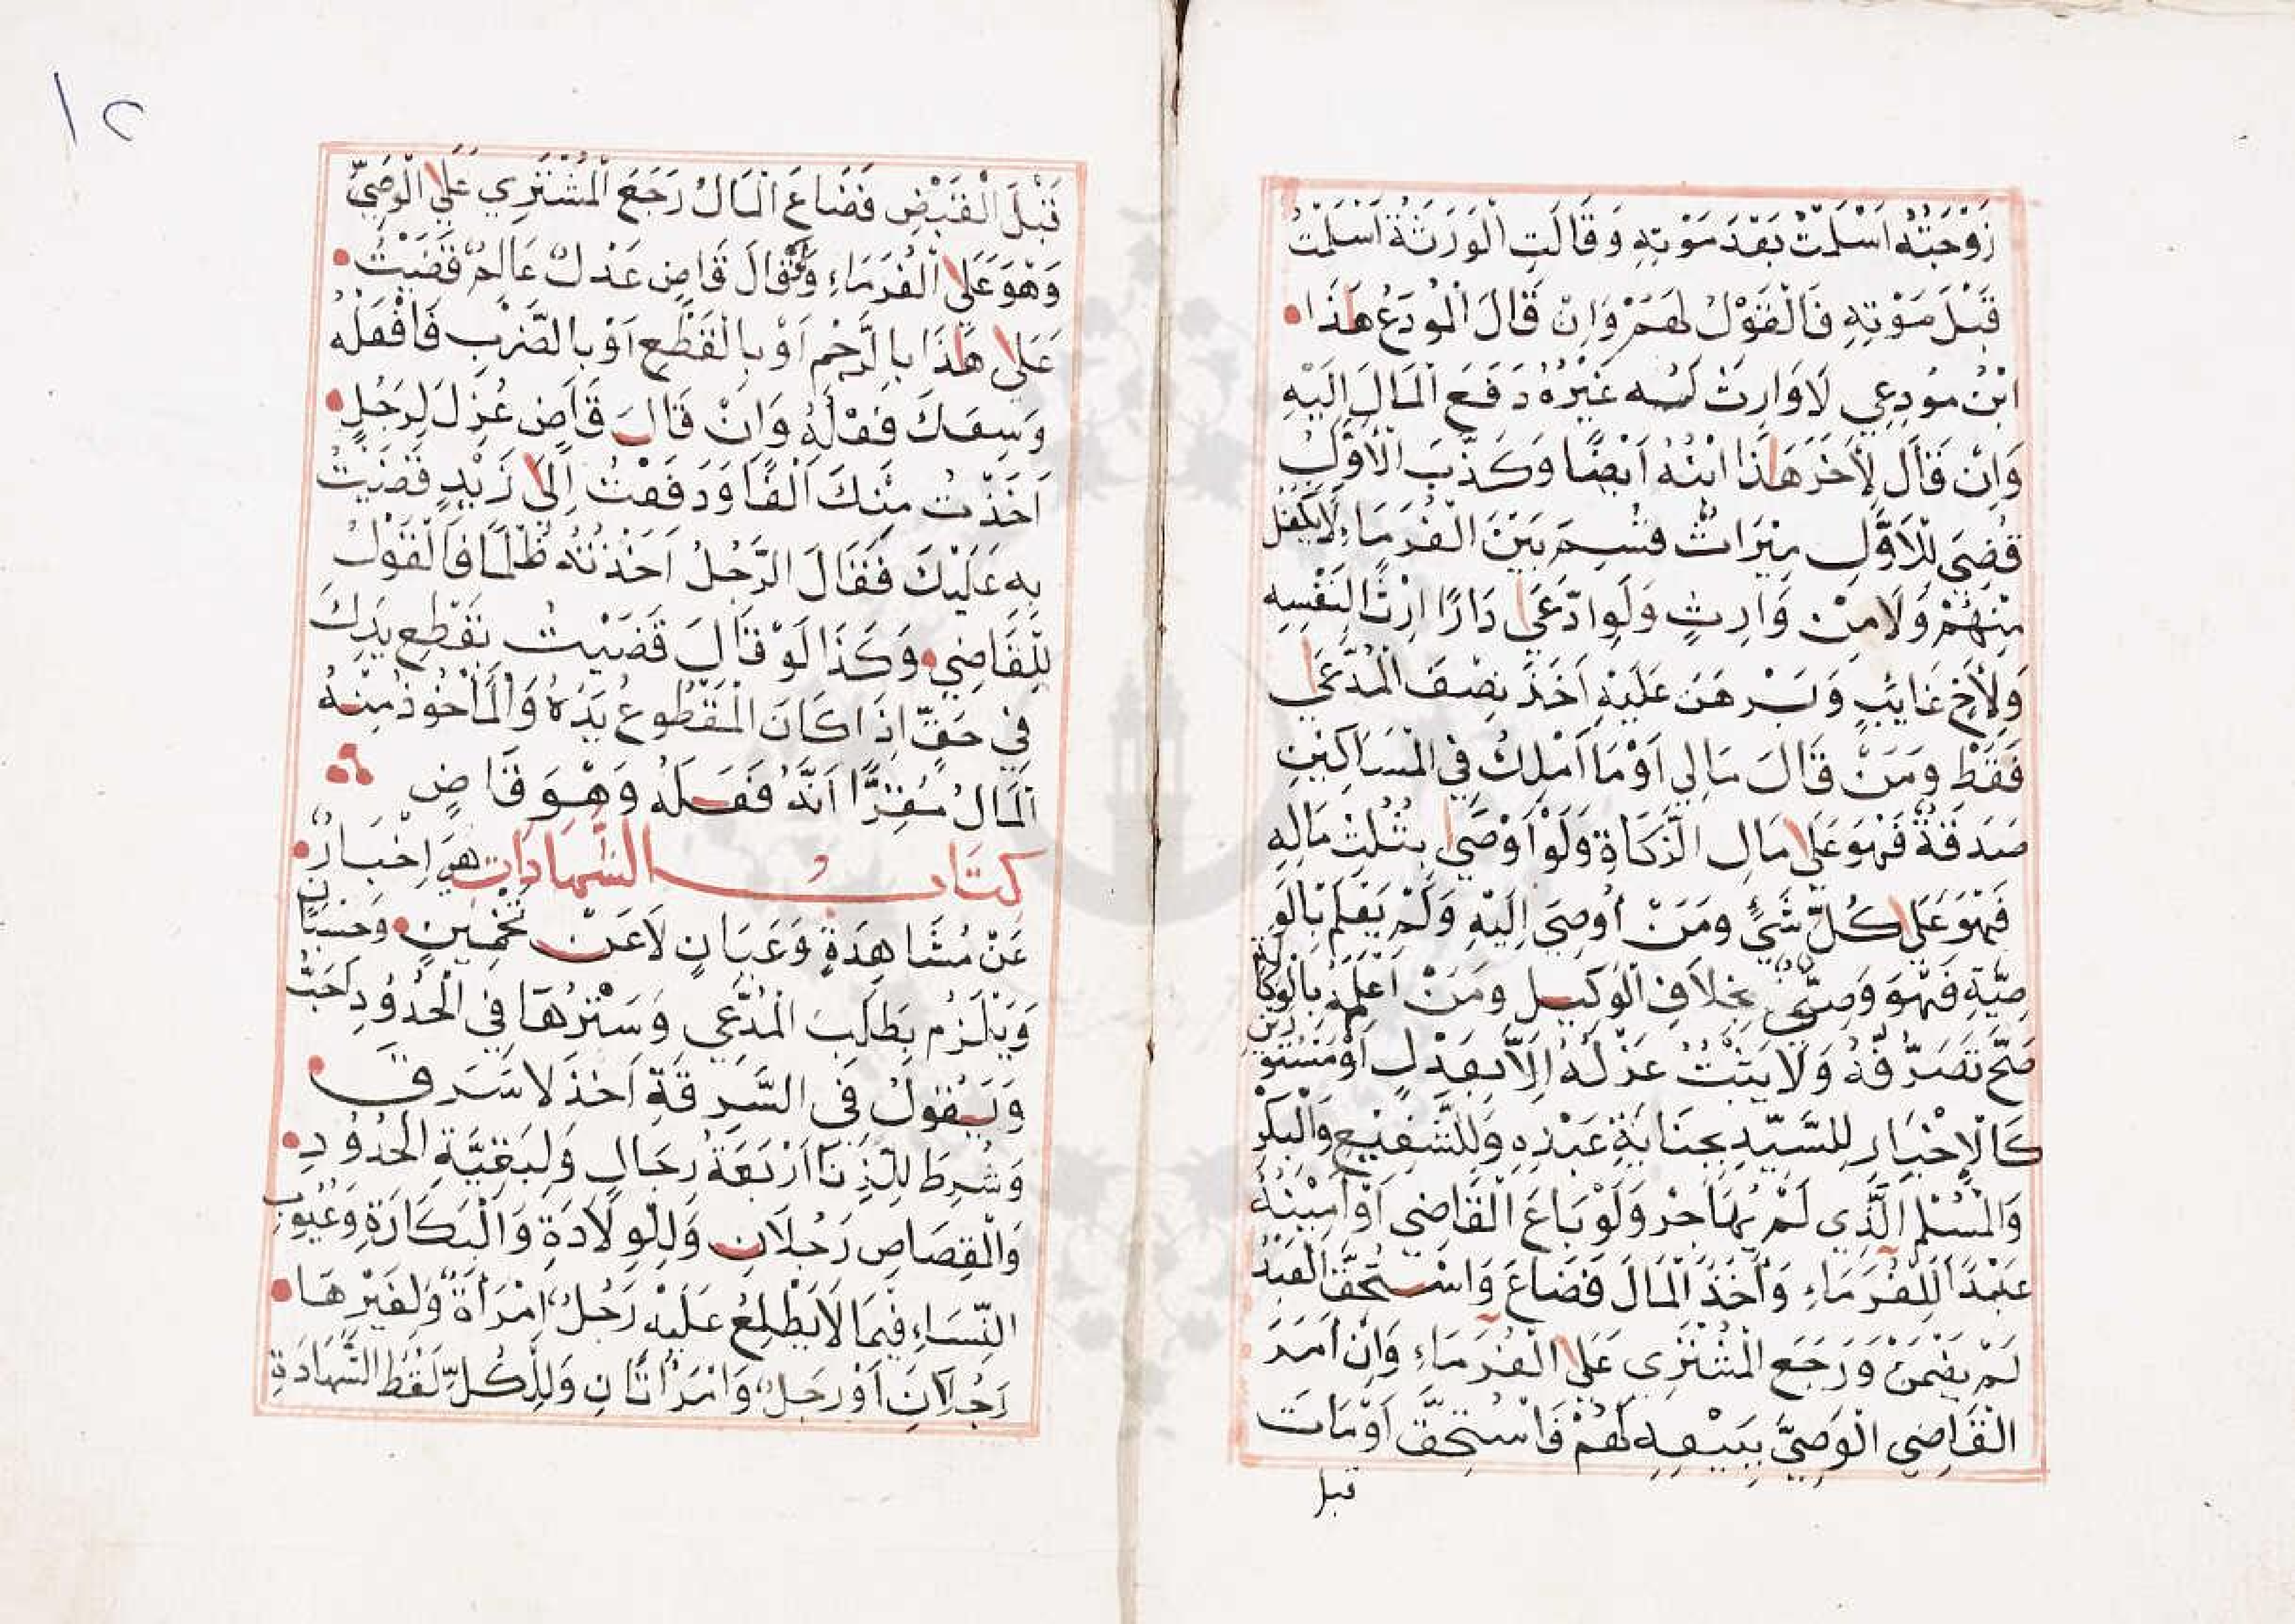 زَوْجَتُهُ اَسْلَمْتُ بَعْدَ مَوْتِهِ وَقَالَتِ الْوَرَثَةُ اَسْلَمْتُ
قَبْلَ مَوْتِهِ فَالْقَوْلُ لَهُمْ وَاِنْ قَالَ الْمُودَعُ هٰذَا
ابْنُ مُودِعِي لَا وَارِثَ لَهُ غَيْرُهُ دَفَعَ الْمَالَ اِلَيْهِ
وَاِنْ قَالَ لِأَخَرَ هٰذَا ابْنُهُ اَيْضًا وَكَذَّبَ الْاَوَّلُ
قُضِيَ لِلْاَوَّلِ مِيْرَاثٌ قُسِمَ بَيْنَ الْغُرَمَاءِ لَا يُكْفَلُ
مِنْهُمْ وَلَا مِنْ وَارِثٍ وَلَوِ ادَّعَى دَارًا اِرْثًا لِنَفْسِهِ
وَلِأَخٍ غَايِبٍ وَبَرْهَنَ عَلَيْهِ اَخَذَ نِصْفَ الْمُدَّعَى
فَقَطْ وَمَنْ قَالَ مَالِي اَوْ مَا اَمْلِكُ فِي الْمَسَاكِيْنِ
صَدَقَةٌ فَهُوَ عَلَى مَالِ الزَّكَاةِ وَلَوْ اَوْصَى بِثُلُثِ مَالِهِ
فَهُوَ عَلَى كُلِّ شَيْءٍ وَمَنْ اُوصِيَ اِلَيْهِ وَلَمْ يَعْلَمْ بِالْوَ
صِيَّةِ فَهُوَ وَصِيٌّ بِخِلَافِ الْوَكِيلِ وَمَنْ اَعْلَمَهُ بِالْوَكَالَةِ
صَحَّ تَصَرُّفُهُ وَلَا يَثْبُتُ عَزْلُهُ اِلَّا بِعَدْلٍ اَوْ مَسْتُورَيْنِ
كَالْاِخْبَارِ لِلسَّيِّدِ بِجِنَايَةِ عَبْدِهِ وَلِلشَّفِيْعِ وَالْبِكْرِ
وَالْمُسْلِمِ الَّذِي لَمْ يُهَاجِرْ وَلَوْ بَاعَ الْقَاضِي اَوْ اَمِيْنُهُ
عَبْدًا لِلْغُرَمَاءِ وَاَخَذَ الْمَالَ فَضَاعَ وَاسْتُحِقَّ الْعَبْدُ
لَمْ يَضْمَنْ وَرَجَعَ الْمُشْتَرِي عَلَى الْغُرَمَاءِ وَاِنْ اَمَرَ
الْقَاضِي الْوَصِيَّ بِبَيْعِهِ لَهُمْ فَاسْتُحِقَّ اَوْ مَاتَ
قبل
١٢
قَبْلَ الْقَبْضِ فَضَاعَ الْمَالُ رَجَعَ الْمُشْتَرِي عَلَى الْوَصِيِّ
وَهُوَ عَلَى الْغُرَمَاءِ وَلَوْ قَالَ قَاضٍ عَدْلٌ عَالِمٌ قَضَيْتُ
عَلَى هٰذَا بِالرَّجْمِ اَوْ بِالْقَطْعِ اَوْ بِالضَّرْبِ فَافْعَلْهُ
وَسِعَكَ فِعْلُهُ وَاِنْ قَالَ قَاضٍ عُزِلَ لِرَجُلٍ
اَخَذْتُ مِنْكَ اَلْفًا وَدَفَعْتُ اِلَى زَيْدٍ قَضَيْتُ
بِهِ عَلَيْكَ فَقَالَ الرَّجُلُ اَخَذْتَهُ ظُلْمًا فَالْقَوْلُ
لِلْقَاضِي وَكَذَا لَوْ قَالَ قَضَيْتُ بِقَطْعِ يَدِكَ
فِي حَقٍّ اِذَا كَانَ الْمَقْطُوعُ يَدُهُ وَالْمَأْخُوذُ مِنْهُ
الْمَالُ مُقِرًّا اَنَّهُ فَعَلَهُ وَهُوَ قَاضٍ
كِتَابُ الشَّهَادَاتِ هِيَ اِخْبَارٌ
عَنْ مُشَاهَدَةٍ وَعَيَانٍ لَا عَنْ تَخْمِيْنٍ وَحُسْبَانٍ
وَيَلْزَمُ بِطَلَبِ الْمُدَّعِي وَسَتْرُهَا فِي الْحُدُودِ اَحَبُّ
وَيَقُولُ فِي السَّرِقَةِ اَخَذَ لَا سَرَقَ
وَشُرِطَ لِلزِّنَا اَرْبَعَةُ رِجَالٍ وَلِبَقِيَّةِ الْحُدُودِ
وَالْقِصَاصِ رَجُلَانِ وَلِلْوِلَادَةِ وَالْبَكَارَةِ وَعُيُوبِ
النِّسَاءِ فِيْمَا لَا يَطَّلِعُ عَلَيْهِ رَجُلٌ امْرَأَةٌ وَلِغَيْرِهَا
رَجُلَانِ اَوْ رَجُلٌ وَامْرَأَتَانِ وَلِلْكُلِّ لَفْظُ الشَّهَادَةِ